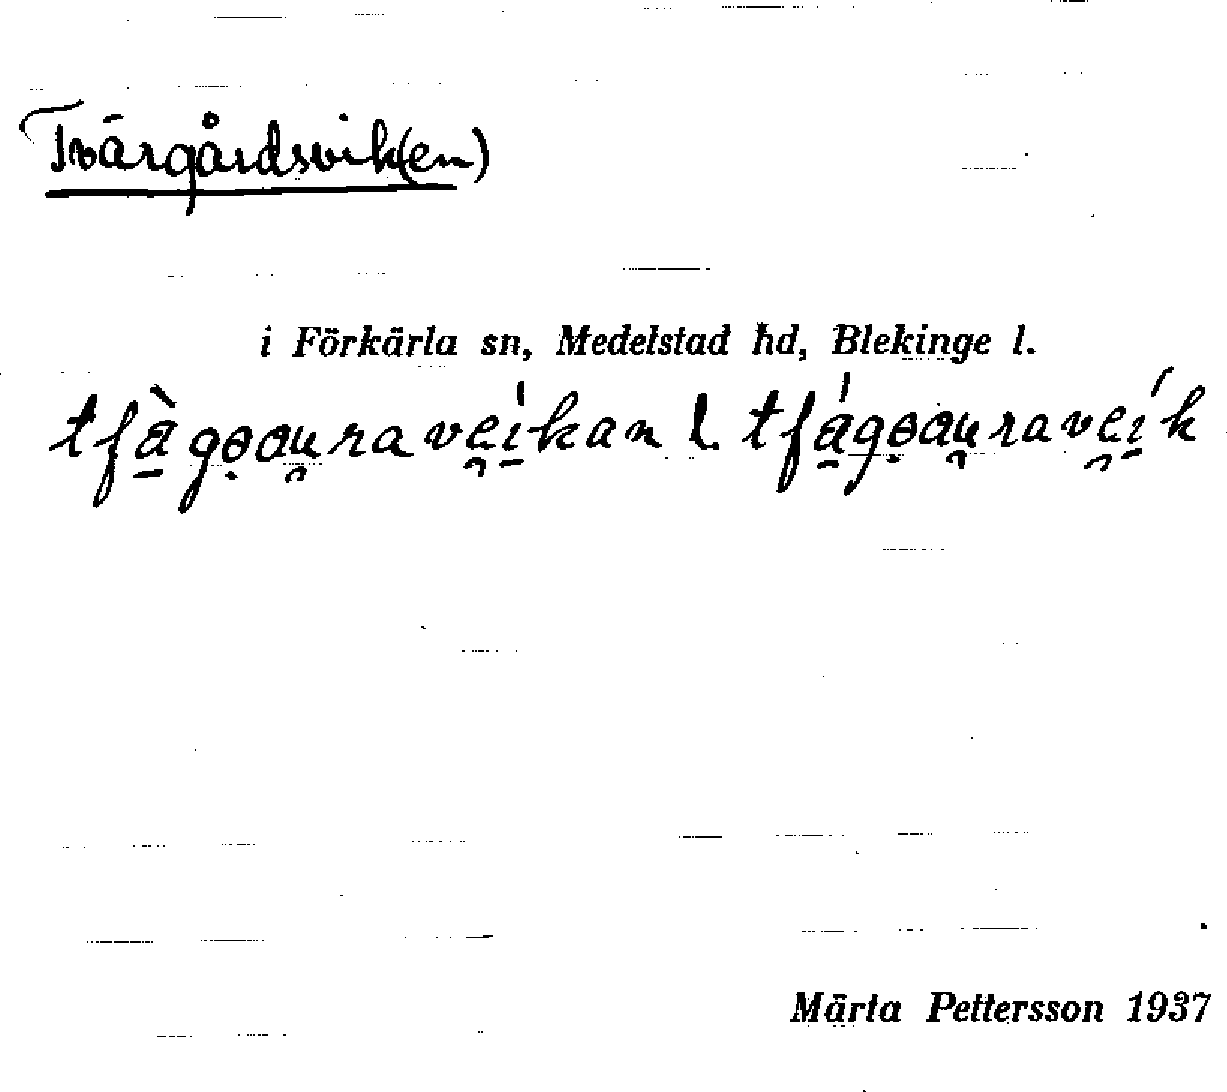 Tvärgårdsvik(en)
i Förkärla sn, Medelstad hd, Blekinge l.
tfà̱gọau̯rave̯í̱kan l. tfá̱gọau̯rave̯í̱k
Märta Pettersson 1937